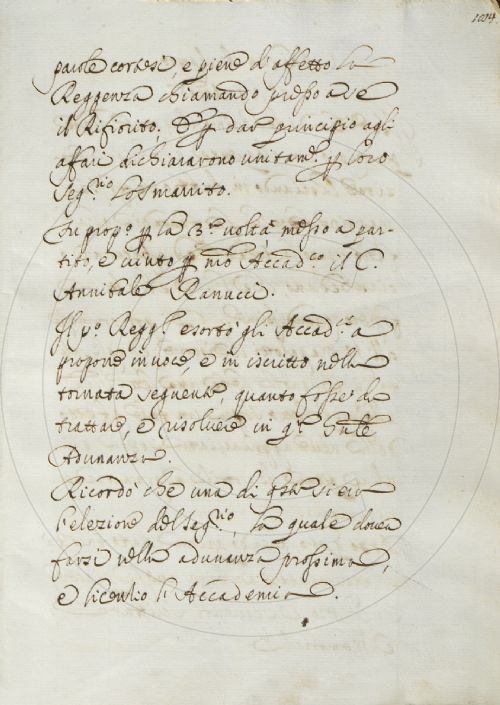 104
parole cortesi, e piene d'affetto la
Reggenza chiamando presso a se
il Rifiorito. E p dar principio agli
affari dichiararono unitam.e p loro
Seg.rio lo Smarrito.
Fu prop.o p la 3.a volta messo a par-
tito, e vinto p n̄ro Accad.co il C.
Annibale Ranucci.
Il p.o Regg.te esortò gli Accad.ci a
proporre in voce, e in iscritto nella
tornata seguente, quanto fosse da
trattare, e risolvere in q.la Gn̄le
Adunanza.
Ricordò che una di q.ste si era
l'elezione del Seg.rio, la quale dovea
farsi nella adunanza prossima,
e licenziò l'Accademia.